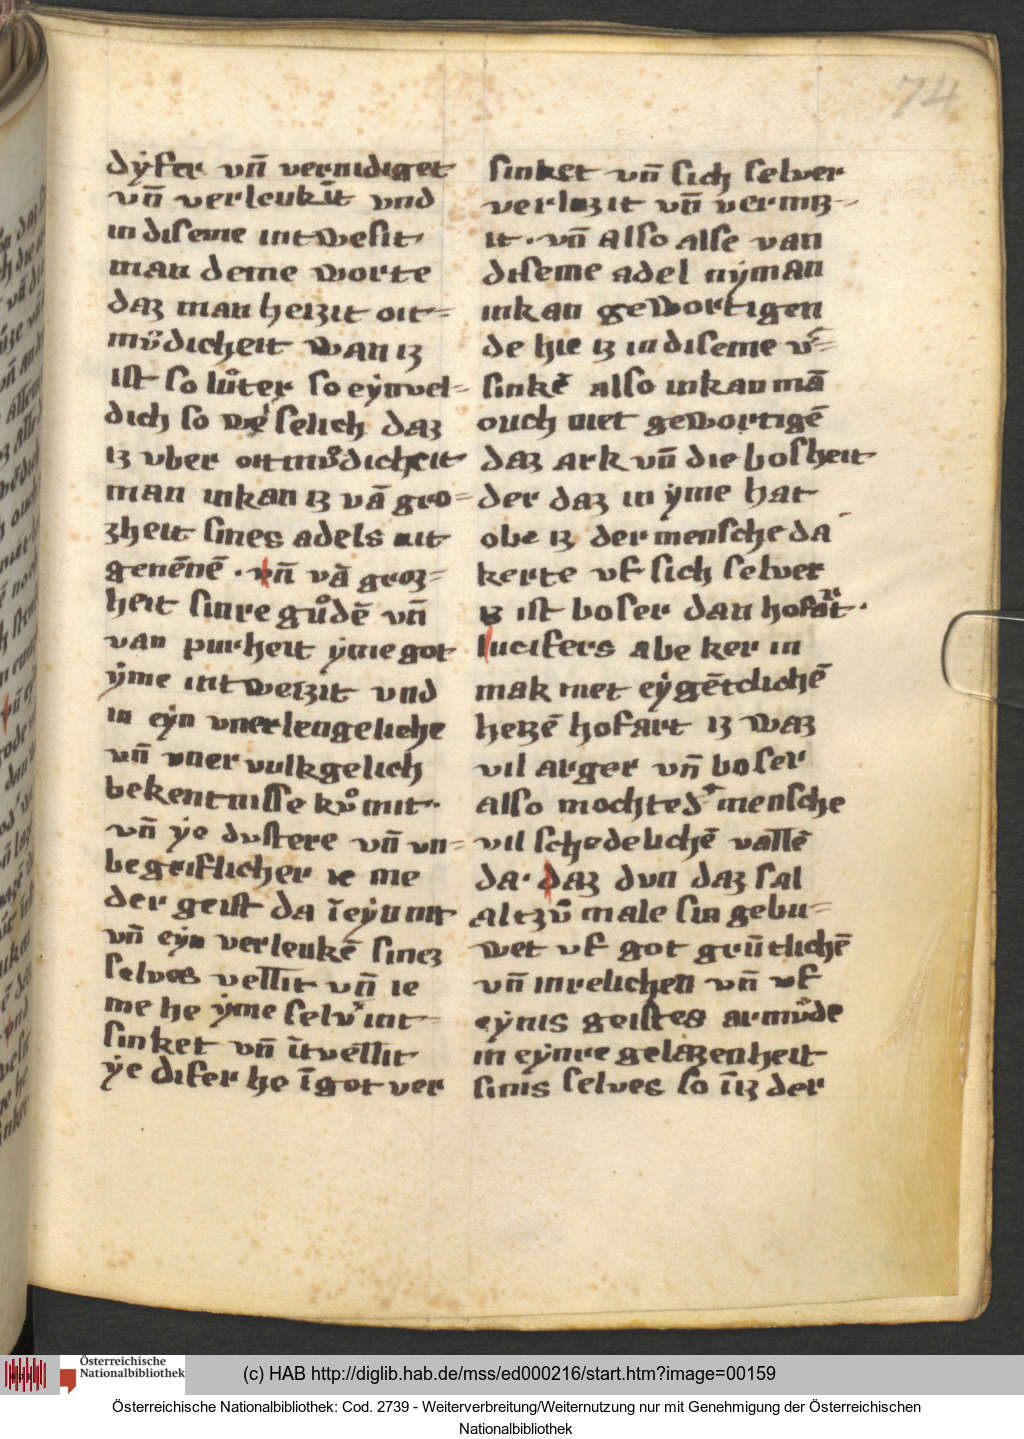 74
dẏser vn̄ vernidiget
vn̄ verleukīt vnd
in diseme intwesit
man deme worte
daz man heizit oit=
mv̊dicheit wan iz
ist so lůter so eẏnvel=
dich so we selich daz
iz vber oitmv̊dicheit
man inkan iz vā gro=
zheit sines adels nit
genēnē · vn̄ vā groz=
heit sinre gůdē vn̄
van purheit ẏme got
ẏme intweizit vnd
in eẏn vnerlengeliche
vn̄ vner vulkgelich
bekentnisse kv̊mit·
vn̄ ẏe dvstere vn̄ vn=
begriflicher ie me
der geist da ī eẏn
vn̄ eẏn verleukē sinez
selves vellit vn̄ ie
me he ẏme selv' int=
sinket vn̄ ītvellit
ẏe diser he ī got ver
sinket vn̄ sich selver
verluzit vn̄ vermiz=
it · vn̄ also alse van
diseme adel nẏman
inkan gewortigen
de hie iz in diseme v'=
sinkē also inkan mā
ouch niet gewortigē
daz ark vn̄ die bosheit
der daz in ẏme hat
obe iz der mensche da
kerte vf sich selver
iz ist boser dan hofart·
lucifers abe ker in
mak niet eẏgētclichē
hezē hofart iz waz
vil arger vn̄ boser
also mochte d' mensche
vil schedelichē vallē
da· daz dvn daz sal
altzv̊ male sin gebu=
wet vf got grūtlichē
vn̄ inrelichen vn̄ vf
eẏnis geistes armv̊de
in eẏnre gelazenheit
sinis selves so īiz der
(c) HAB http://diglib.hab.de/mss/ed000216/start.htm?image=00159
Österreichische Nationalbibliothek
Österreichische Nationalbibliothek: Cod. 2739 - Weiterverbreitung/Weiternutzung nur mit Genehmigung der Österreichischen
Nationalbibliothek